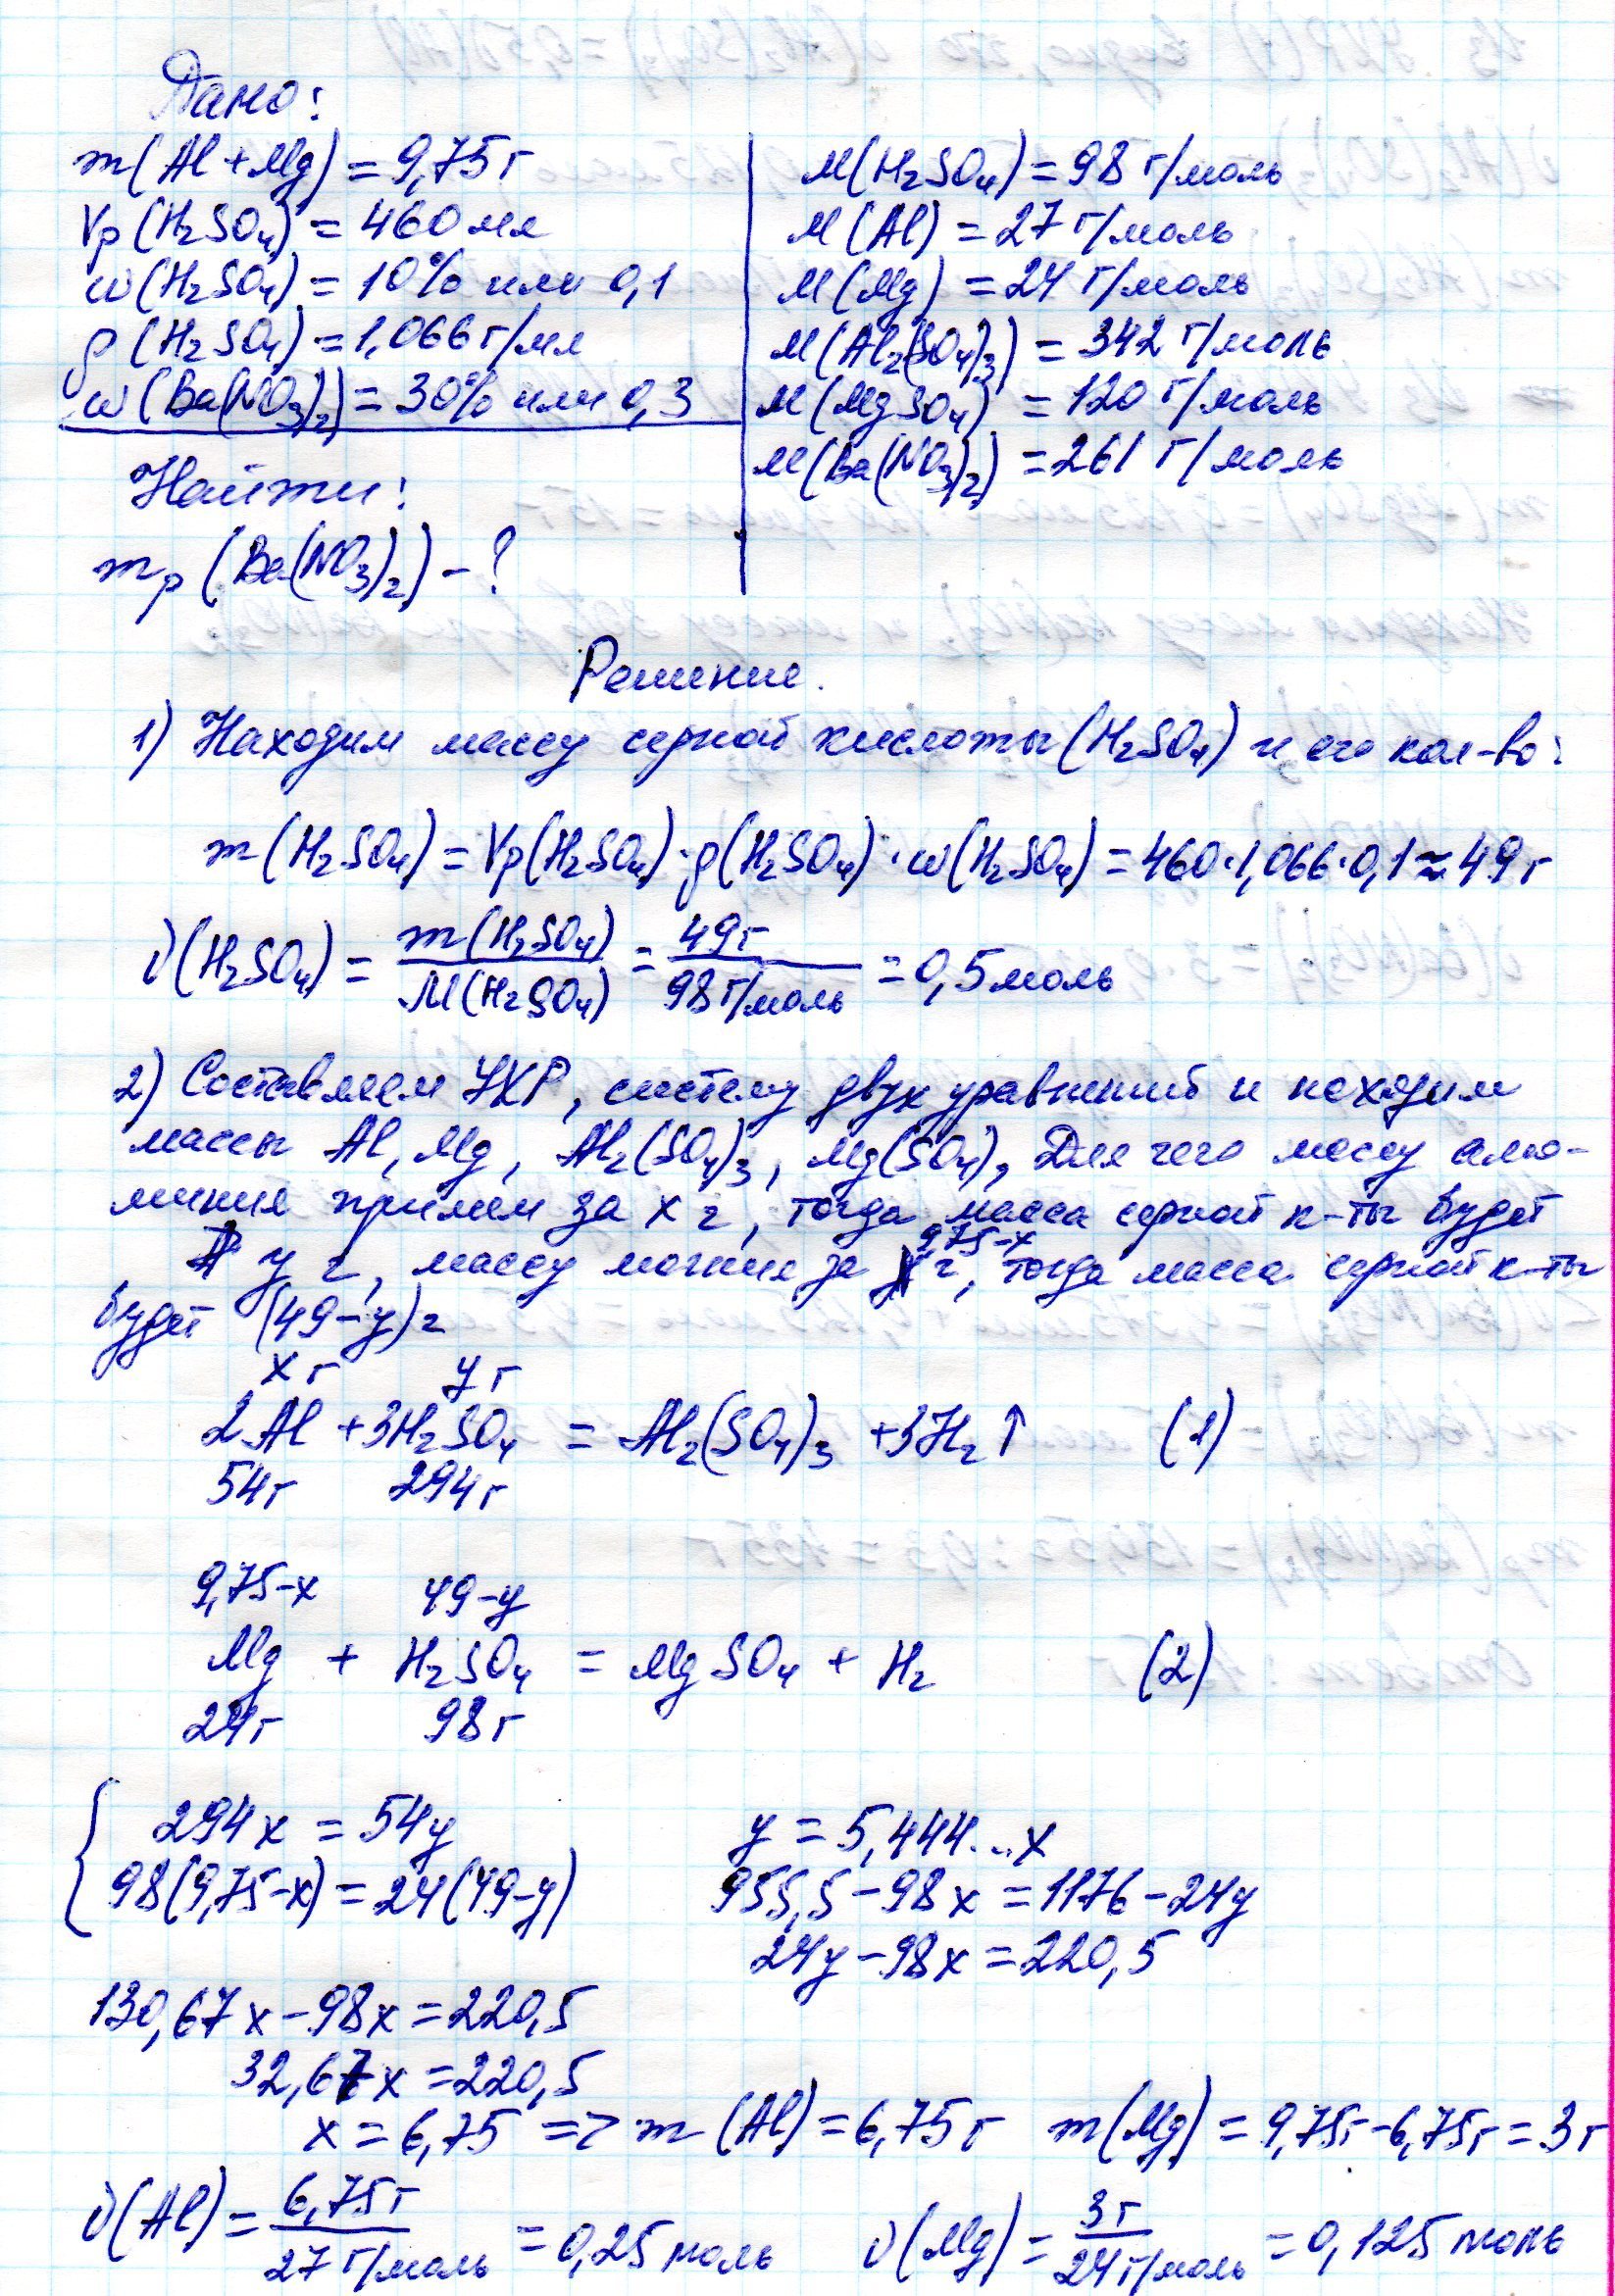 Дано:
m(Al+Mg) = 9,75 г
Vр(H₂SO₄) = 460 мл
ω(H₂SO₄) = 10% или 0,1
ρ(H₂SO₄) = 1,066 г/мл
ω(Ba(NO₃)₂) = 30% или 0,3
Найти:
mр(Ba(NO₃)₂) - ?
M(H₂SO₄) = 98 г/моль
M(Al) = 27 г/моль
M(Mg) = 24 г/моль
M(Al₂(SO₄)₃) = 342 г/моль
M(MgSO₄) = 120 г/моль
M(Ba(NO₃)₂) = 261 г/моль
Решение.
1) Находим массу серной кислоты (H₂SO₄) и его кол-во:
m(H₂SO₄) = Vр(H₂SO₄)·ρ(H₂SO₄)·ω(H₂SO₄) = 460·1,066·0,1 ≈ 49 г
ν(H₂SO₄) = m(H₂SO₄)/M(H₂SO₄) = 49 г/98 г/моль = 0,5 моль
2) Составляем УХР, систему двух уравнений и находим
массы Al, Mg, Al₂(SO₄)₃, Mg(SO₄), Для чего массу алю-
миния примем за x г, тогда масса серной к-ты будет
y г, массу магния за 9,75-x г, тогда масса серной к-ты
будет (49-y) г
x г y г
2Al + 3H₂SO₄ = Al₂(SO₄)₃ + 3H₂↑ (1)
54 г 294 г
9,75-x 49-y
Mg + H₂SO₄ = MgSO₄ + H₂ (2)
24 г 98 г
{ 294x = 54y
98(9,75-x) = 24(49-y)
y = 5,444...x
955,5 - 98x = 1176 - 24y
24y - 98x = 220,5
130,67x - 98x = 220,5
32,67x = 220,5
x = 6,75 => m(Al) = 6,75 г m(Mg) = 9,75 г - 6,75 г = 3 г
ν(Al) = 6,75 г/27 г/моль = 0,25 моль ν(Mg) = 3 г/24 г/моль = 0,125 моль